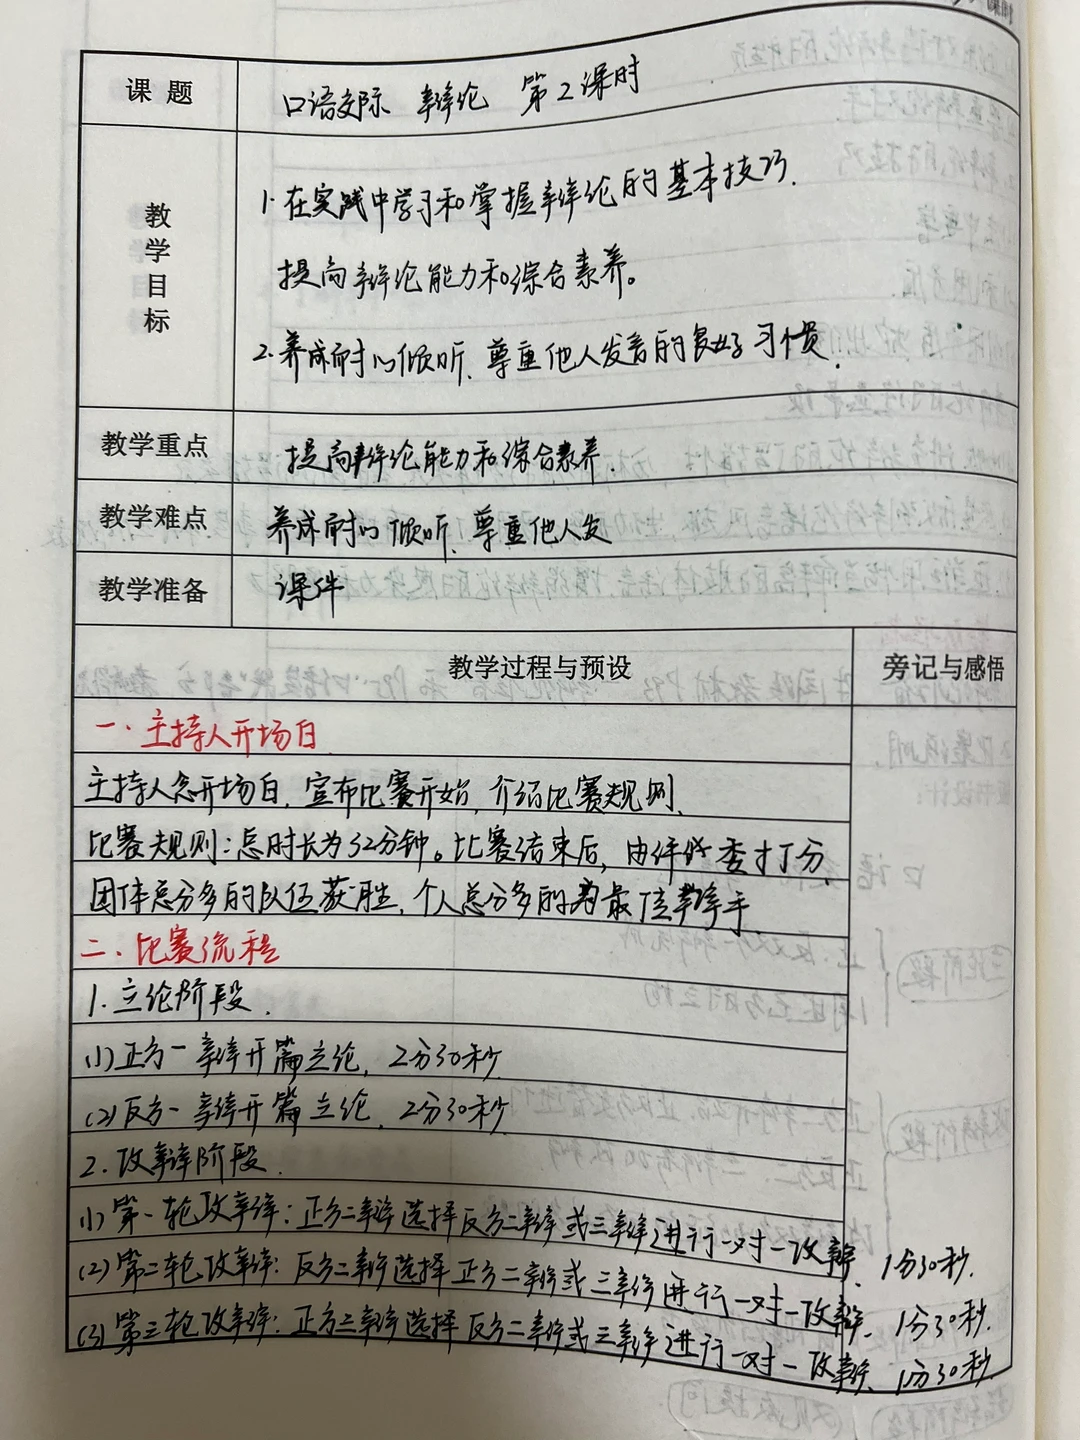 课时
课题 口语交际 辩论 第2课时
教学目标
1. 在实践中学习和掌握辩论的基本技巧.
提高辩论能力和综合素养。
2. 养成耐心倾听、尊重他人发言的良好习惯.
教学重点 提高辩论能力和综合素养.
教学难点 养成耐心倾听、尊重他人发
教学准备 课件
教学过程与预设 旁记与感悟
一、主持人开场白
主持人念开场白,宣布比赛开始,介绍比赛规则.
比赛规则:总时长为32分钟。比赛结束后,由评委打分,
团体总分多的队伍获胜,个人总分多的为最佳辩手
二、比赛流程
1. 立论阶段.
(1)正方一辩开篇立论, 2分30秒
(2)反方一辩开篇立论, 2分30秒
2. 攻辩阶段.
(1)第一轮攻辩:正方二辩选择反方二辩或三辩进行一对一攻辩, 1分30秒.
(2)第二轮攻辩:反方二辩选择正方二辩或三辩进行一对一攻辩、1分30秒.
(3)第三轮攻辩:正方三辩选择反方二辩或三辩进行一对一攻辩、1分30秒.